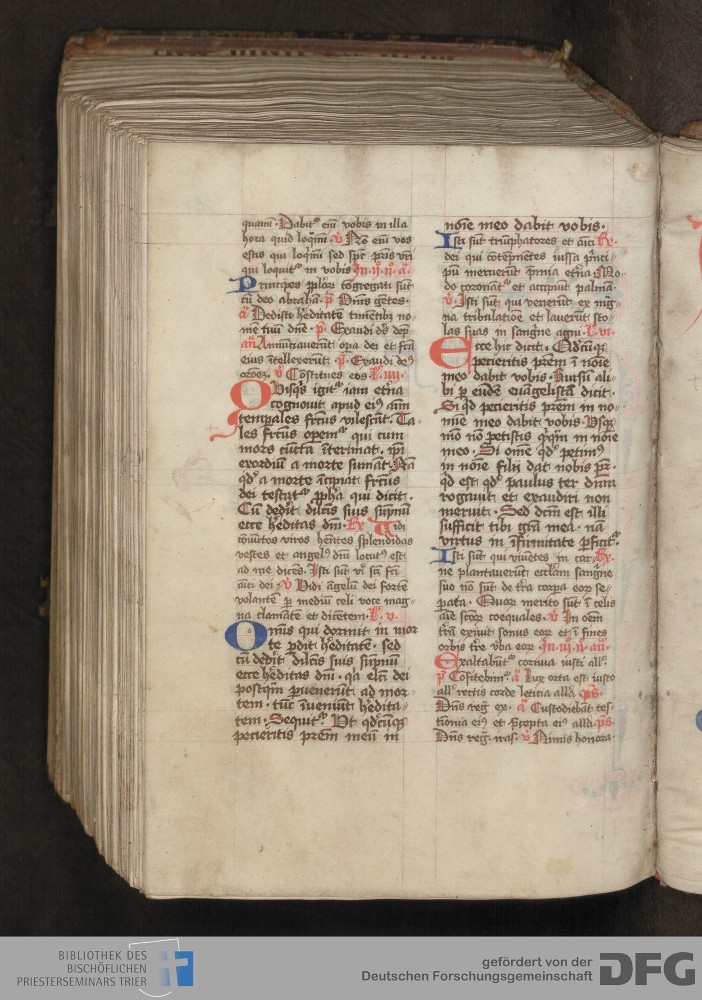 quam. Dabitur enim vobis in illa
hora quid loqmini v Non enim vos
estis qui loqmini sed spc pris vri
qui loquitur in vobis In ii n a
Principes pplorum congregati sut
cu deo abraha p Dns gentes.
a Dedisti hereditate timetibz no-
mē tuū dne. p Exaudi ds dep-
an Annunciaverūt opa dei et fca
eius intellexerūt. p Exaudi deus
v Cōstitues eos L iiii
Quisqs igitur iam etna
cognouit apud eius am
temporales frcus vilescunt. Ta-
les frcus opem qui cum
mors cūcta iterimat. ipi
exordiū a morte sumāt. Nā
qd a morte incipiat frcus
dei testatur ppha qui dicit.
Cū dederit dilcis suis sūpnū
ecce hereditas dni. Rx Vidi
coniūctos viros hentes splendidas
vestes et angelus dni locutus est
ad me dicēs. Isti sūt viri sci fci
amici dei. v Vidi angelū dei forte
volantē per mediū celi voce mag-
na clamātē et dicētem. L v.
Omnis qui dormit in mor
te perdit hereditatē. sed
cū dederit dilcis suis sūpnū
ecce hereditas dni. qa elci dei
postqm pervenerūt ad mor-
tem. tūc inveniūt heredita-
tem. Sequitur. Ut qdcūqz
pecieritis prēm meū in
noīe meo dabit vobis.
Isti sūt triūphatores et amici Rx
dei qui cōtēpnētes iussa prīci-
pū meruerūt premia etna Mo-
do coronātur et accipiūt palmā
v Isti sūt qui venerūt ex mag-
na tribulatiōe et laverūt sto-
las suas in sangīne agni. L vi
Ecce hic dicit. Qdcūqz
pecieritis prēm ī noīe
meo dabit vobis. Rursū ali-
bi per eūdē euāgelistā dicit.
Si qd pecieritis prēm in no-
mīe meo dabit vobis. Usqz
mō nō petistis qcqm in noīe
meo. Si ome qd petimus
in noīe filii dat nobis pr.
qd est qd paulus ter dnm
rogavit et exaudiri non
meruit. Sed dcm est illi
sufficit tibi grā mea. nā
virtus in īfirmitate perficitur.
Isti sūt qui viuētes in car Rx
ne plantaverūt ecclam sangīne
suo nō sūt de tra corpora eorum se-
parata. Quorum merito sūt ī celis
aīe sctorum coequales. v In oēm
trā exivit sonus eorum et ī fines
orbis tre vba eorum In iii n an
Exaltabūtur cornua iusti all.
p Cōfitebimur a Lux orta est iusto
all rectis corde leticia alla ps
Dns reg ex. a Custodiebāt tes-
timonia eius et precepta eius alla. ps
Dns reg iras. v Nimis honora-
BIBLIOTHEK DES
BISCHÖFLICHEN
PRIESTERSEMINARS TRIER
gefördert von der
Deutschen Forschungsgemeinschaft
DFG